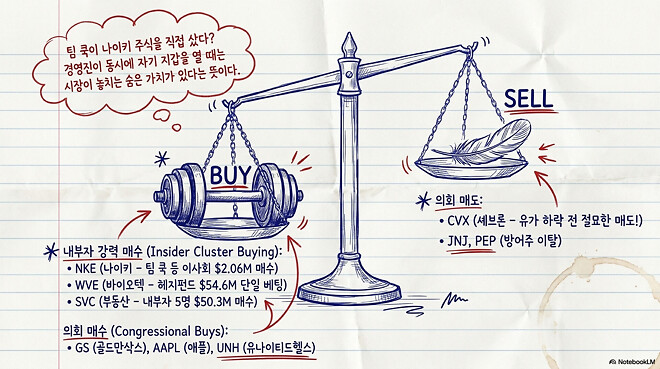 팀 쿡이 나이키 주식을 직접 샀다?
경영진이 동시에 자기 지갑을 열 때는
시장이 놓치는 숨은 가치가 있다는 뜻이다.
BUY
SELL
* 내부자 강력 매수 (Insider Cluster Buying):
• NKE (나이키 – 팀 쿡 등 이사회 $2.06M 매수)
• WVE (바이오텍 – 헤지펀드 $54.6M 단일 베팅)
• SVC (부동산 – 내부자 5명 $50.3M 매수)
의회 매수 (Congressional Buys):
• GS (골드만삭스), AAPL (애플), UNH (유나이티드헬스)
* 의회 매도:
• CVX (셰브론 – 유가 하락 전 절묘한 매도!)
• JNJ, PEP (방어주 이탈)
NotebookLM